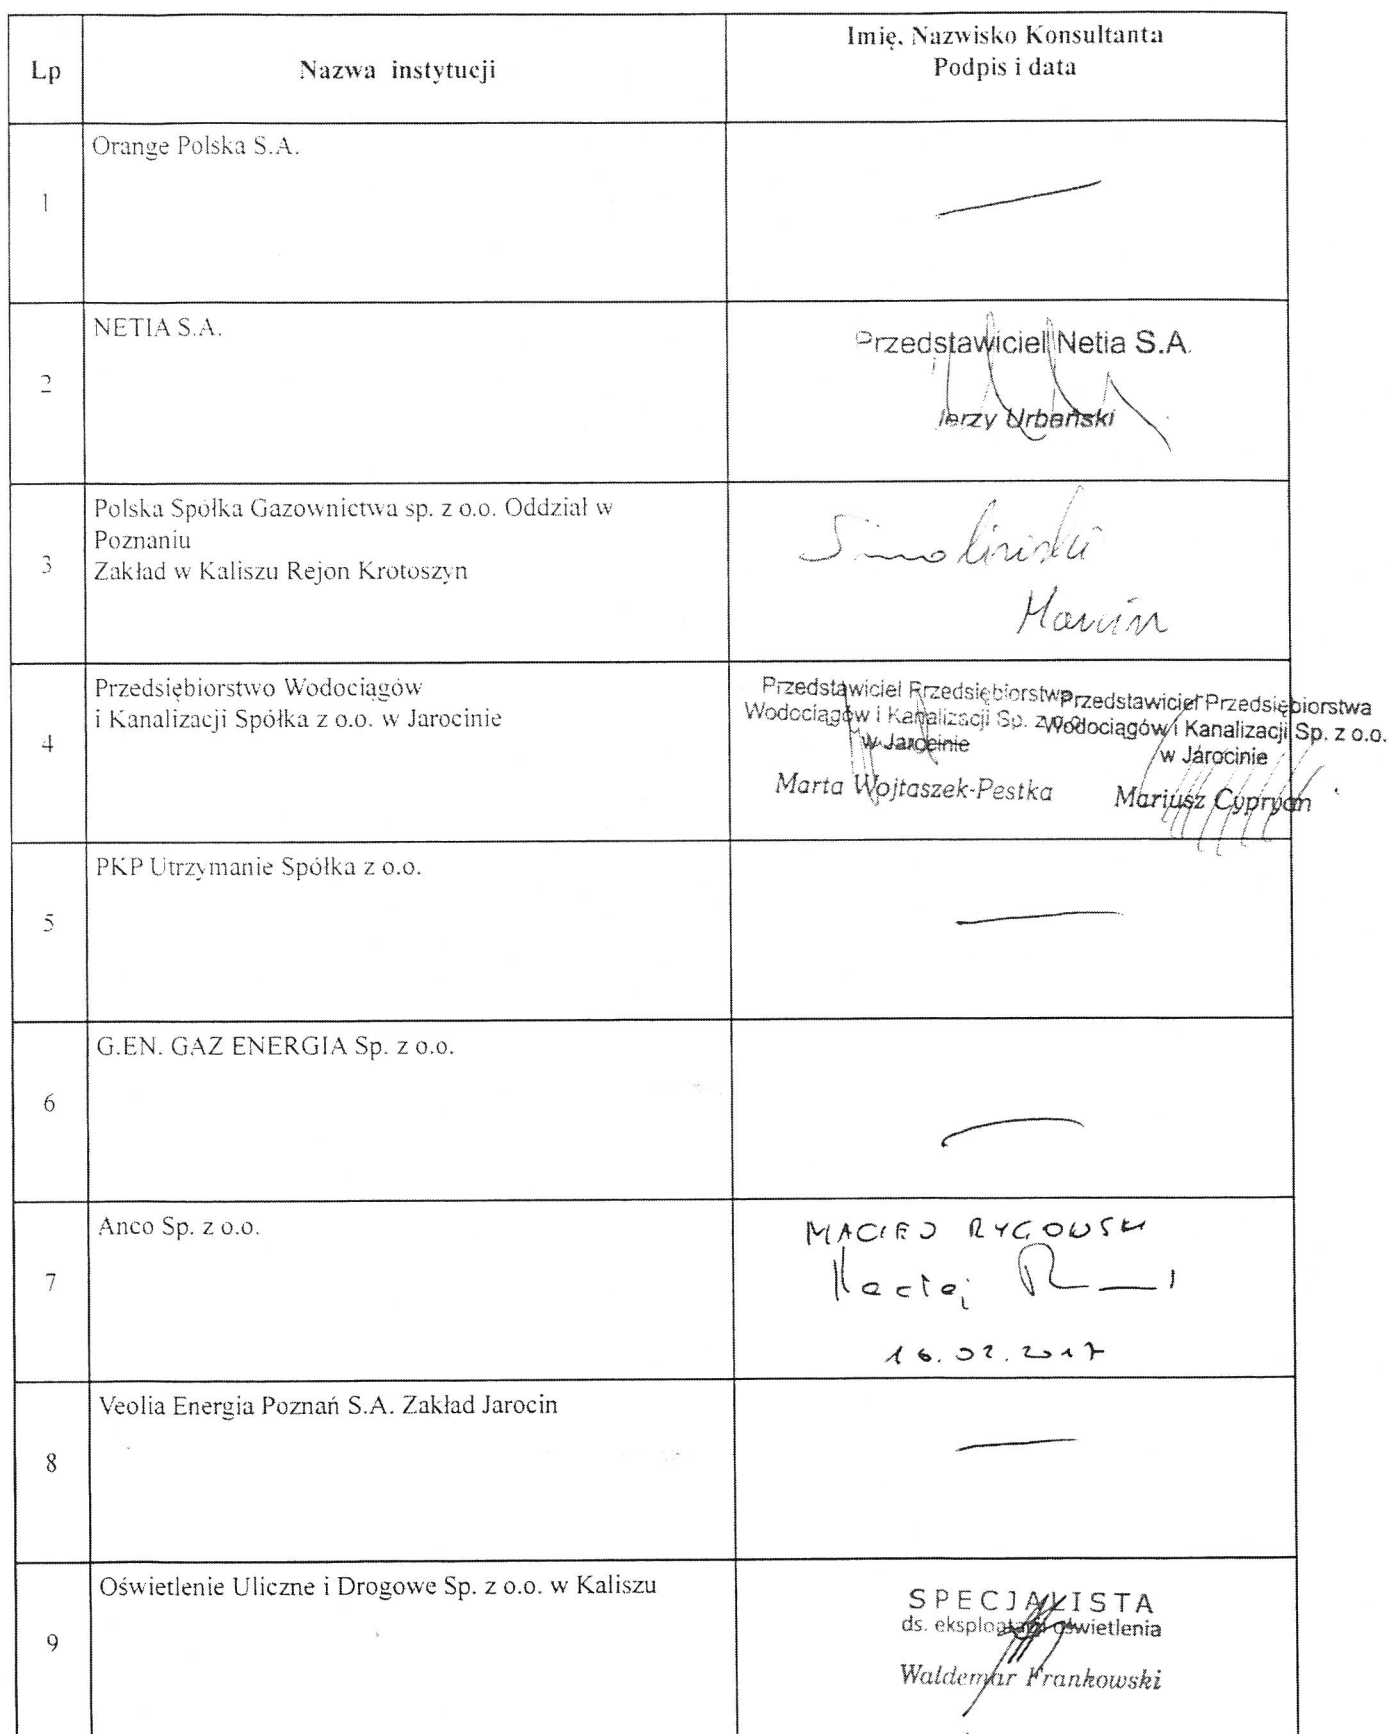 Lp
Nazwa instytucji
Imię, Nazwisko Konsultanta
Podpis i data
1
Orange Polska S.A.
2
NETIA S.A.
Przedstawiciel Netia S.A.
Jerzy Urbański
3
Polska Spółka Gazownictwa sp. z o.o. Oddział w
Poznaniu
Zakład w Kaliszu Rejon Krotoszyn
Smoliński
Marcin
4
Przedsiębiorstwo Wodociągów
i Kanalizacji Spółka z o.o. w Jarocinie
Przedstawiciel Przedsiębiorstwa
Wodociągów i Kanalizacji Sp. z o.o.
w Jarocinie
Marta Wojtaszek-Pestka
Przedstawiciel Przedsiębiorstwa
Wodociągów i Kanalizacji Sp. z o.o.
w Jarocinie
Mariusz Cypryan
5
PKP Utrzymanie Spółka z o.o.
6
G.EN. GAZ ENERGIA Sp. z o.o.
7
Anco Sp. z o.o.
MACIEJ RYGOWSKI
Maciej
16.02.2017
8
Veolia Energia Poznań S.A. Zakład Jarocin
9
Oświetlenie Uliczne i Drogowe Sp. z o.o. w Kaliszu
SPECJALISTA
ds. eksploatacji oświetlenia
Waldemar Frankowski